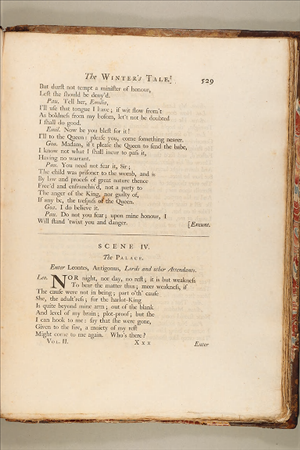 The WINTER's TALE.
529
But durst not tempt a minister of honour,
Lest she should be deny'd.
Pau. Tell her, Emilia,
I'll use that tongue I have; if wit flow from't
As boldness from my bosom, let't not be doubted
I shall do good.
Emil. Now be you blest for it!
I'll to the Queen: please you, come something nearer.
Goa. Madam, if't please the Queen to send the babe,
I know not what I shall incur to pass it,
Having no warrant.
Pau. You need not fear it, Sir;
The child was prisoner to the womb, and is
By law and process of great nature thence
Free'd and enfranchis'd, not a party to
The anger of the King, nor guilty of,
If any be, the trespass of the Queen.
Goa. I do believe it.
Pau. Do not you fear; upon mine honour, I
Will stand 'twixt you and danger.
[Exeunt.
SCENE IV.
The PALACE.
Enter Leontes, Antigonus, Lords and other Attendants.
Leo. NOR night, nor day, no rest; it is but weakness
To bear the matter thus; meer weakness, if
The cause were not in being; part o'th' cause
She, the adult'ress; for the harlot-King
Is quite beyond mine arm; out of the blank
And level of my brain; plot-proof; but she
I can hook to me: say that she were gone,
Given to the fire, a moiety of my rest
Might come to me again. Who's there?
VOL. II.
X x x
Enter